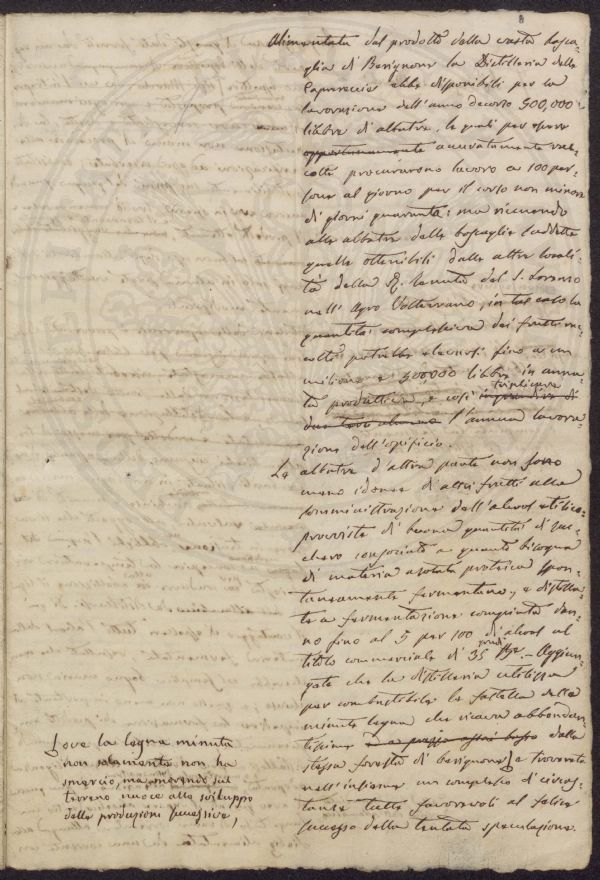 8
Alimentata dal prodotto della vasta bosca=
glia di Berignone la Distilleria delle
Caprareccie ebbe disponibili per la
lavorazione dell'anno decorso 500,000
libbre di albatre, le quali per essere
opportunamente accuratamente rac=
colte procurarono lavoro a 100 per=
sone al giorno per il corso non minore
di giorni quaranta: ma riunendo
alle albatre delle boscaglie suddette
quelle ottenibili dalle altre locali=
tà della R. tenuta del S. Lorenzo
nell'Agro Volterrano, in tal caso la
quantità complessiva dei frutti rac=
colti potrebbe elevarsi fino a un
milione e 500,000 libbre in anna=
ta produttiva, e così
triplicare
due terzi almeno l'annua lavora=
zione dell'opificio.
Le albatre d'altra parte non sono
meno idonee di altri frutti alla
somministrazione dell'alcool etilico,
provviste di buona quantità di zuc=
chero consociato a quanto bisogna
di materia azotata proteica spon=
taneamente fermentano, e distilla=
te a fermentazione compiuta dan=
no fino al 5 per 100 di alcool al
titolo commerciale di 35 gradi Br. - Aggiun=
gate che la distilleria utilizza
per combustibile le fastella della
minuta legna che ricava abbondan=
tissime e a prezzo assai basso dalla
stessa foresta di Berignone e troverete
nell'insieme un complesso di circos=
tanze tutte favorevoli al felice
successo della tentata speculazione.
ove la legna minuta
non solamente non ha
smercio, ma marcendo sul
terreno nuoce allo sviluppo
delle produzioni successive,